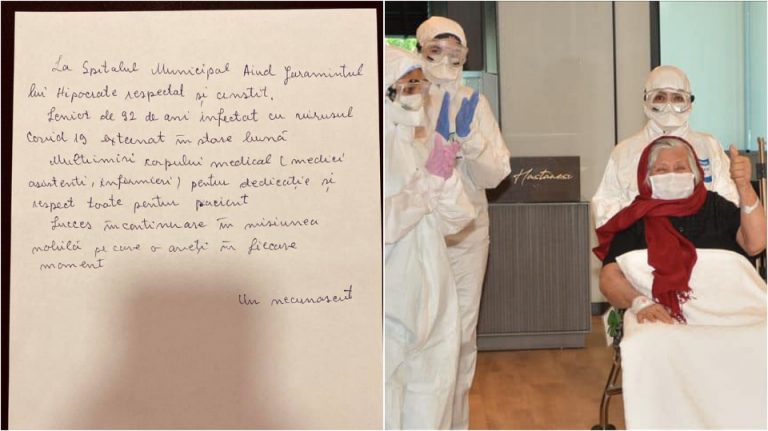 La Spitalul Municipal Aiud Juramîntul
lui Hipocrate respectat și cinstit.
Senior de 92 de ani infectat cu virusul
Covid 19 externat în stare bună
Mulțimiri corpului medical (medici
asistenti, infermieri) pentru dedicație și
respect toate pentru pacient
Succes în continuare în misiunea
nobilă pe care o aveți în fiecare
moment
Un necunoscut
Hastanesi